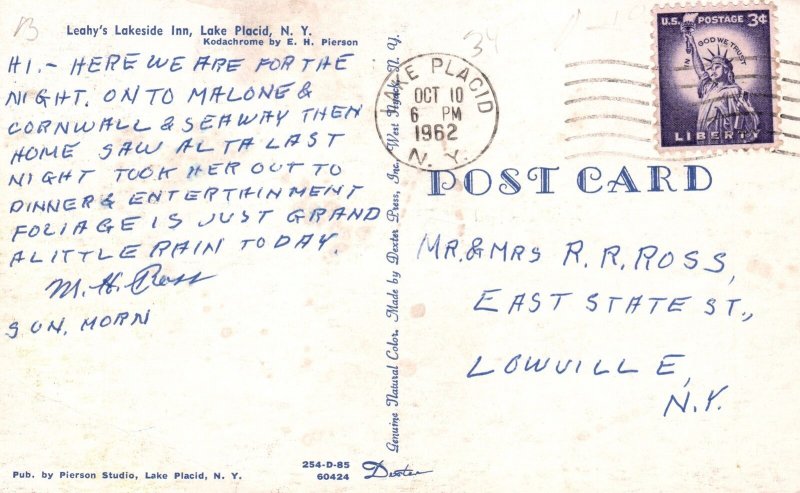 Leahy's Lakeside Inn, Lake Placid, N. Y.
Kodachrome by E. H. Pierson
HI.- HERE WE ARE FOR THE
NIGHT. ON TO MALONE &
CORNWALL & SEAWAY THEN
HOME SAW ALTA LAST
NIGHT TOOK HER OUT TO
DINNER & ENTERTAINMENT
FOLIAGE IS JUST GRAND
A LITTLE RAIN TODAY.
M. H. Ross
SUN, MORN
Pub. by Pierson Studio, Lake Placid, N. Y.
254-D-85
60424
Dexter
Genuine Natural Color. Made by Dexter Press, Inc., West Nyack, N. Y.
LAKE PLACID
OCT 10
6 PM
1962
N. Y.
34
U.S. POSTAGE 3¢
IN GOD WE TRUST
LIBERTY
POST CARD
MR. & MRS R. R. ROSS,
EAST STATE ST.,
LOWVILLE,
N.Y.